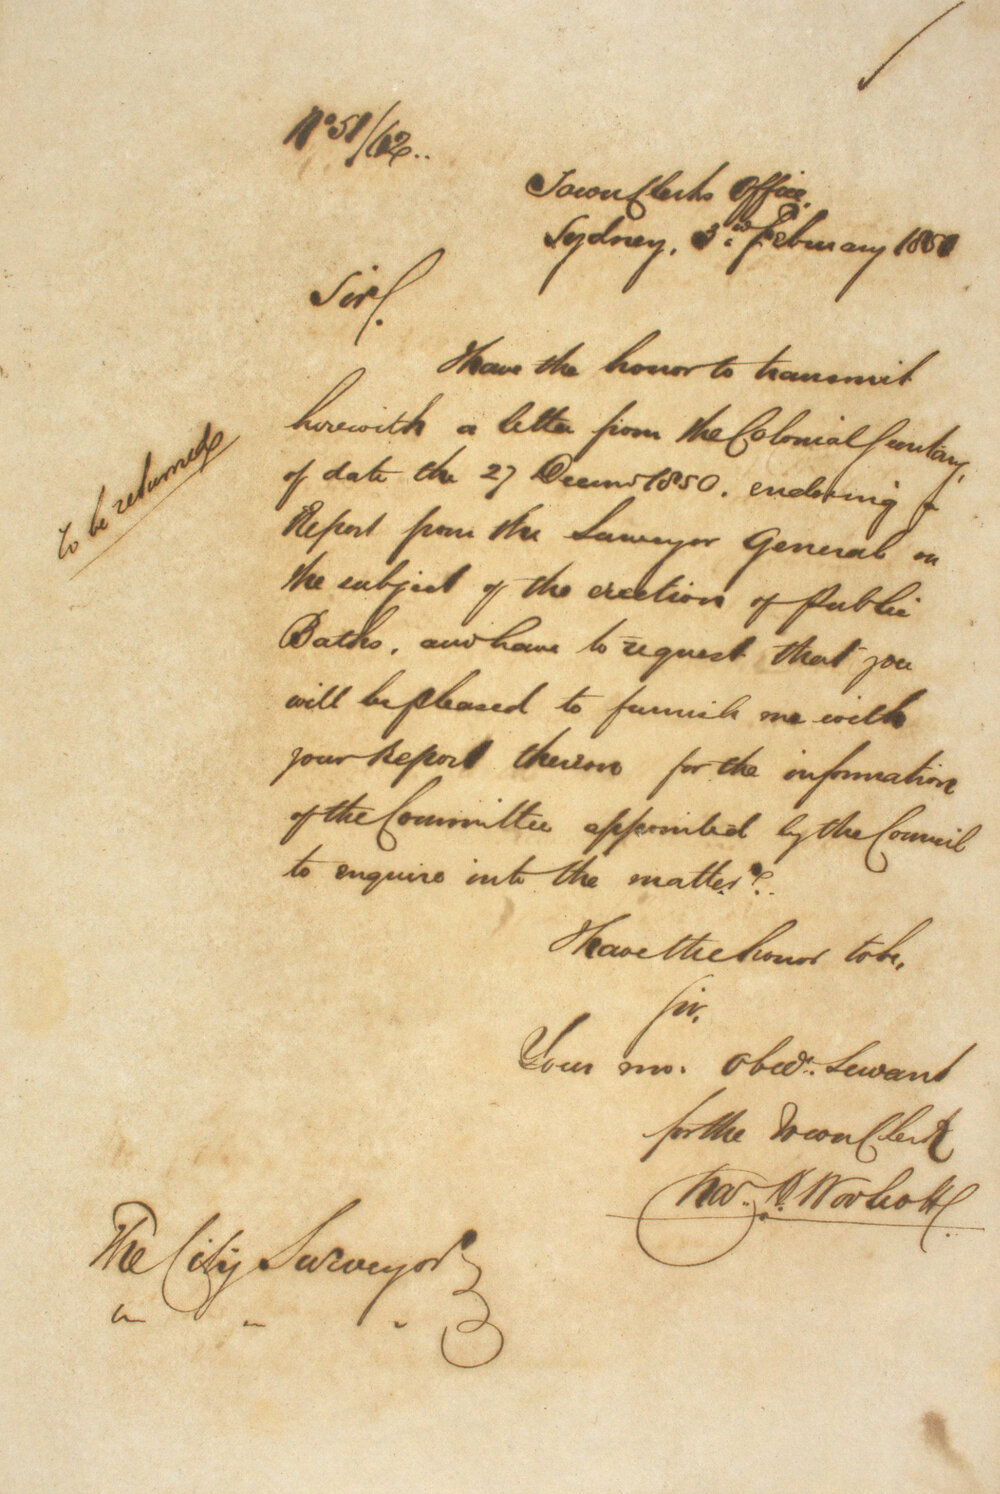 No 51/62..
Town Clerks Office.
Sydney, 3rd February 1851
Sir.
I have the honor to transmit
herewith a letter from the Colonial Secretary,
of date the 27 Decemr 1850. enclosing a
Report from the Surveyor General on
to be returned
the subject of the erection of Public
Baths, and have to request that you
will be pleased to furnish me with
your Report thereon for the information
of the Committee appointed by the Council
to enquire into the matter.
I have the honor to be,
Sir.
Your mo. Obedt. Servant
for the Town Clerk
The City Surveyor